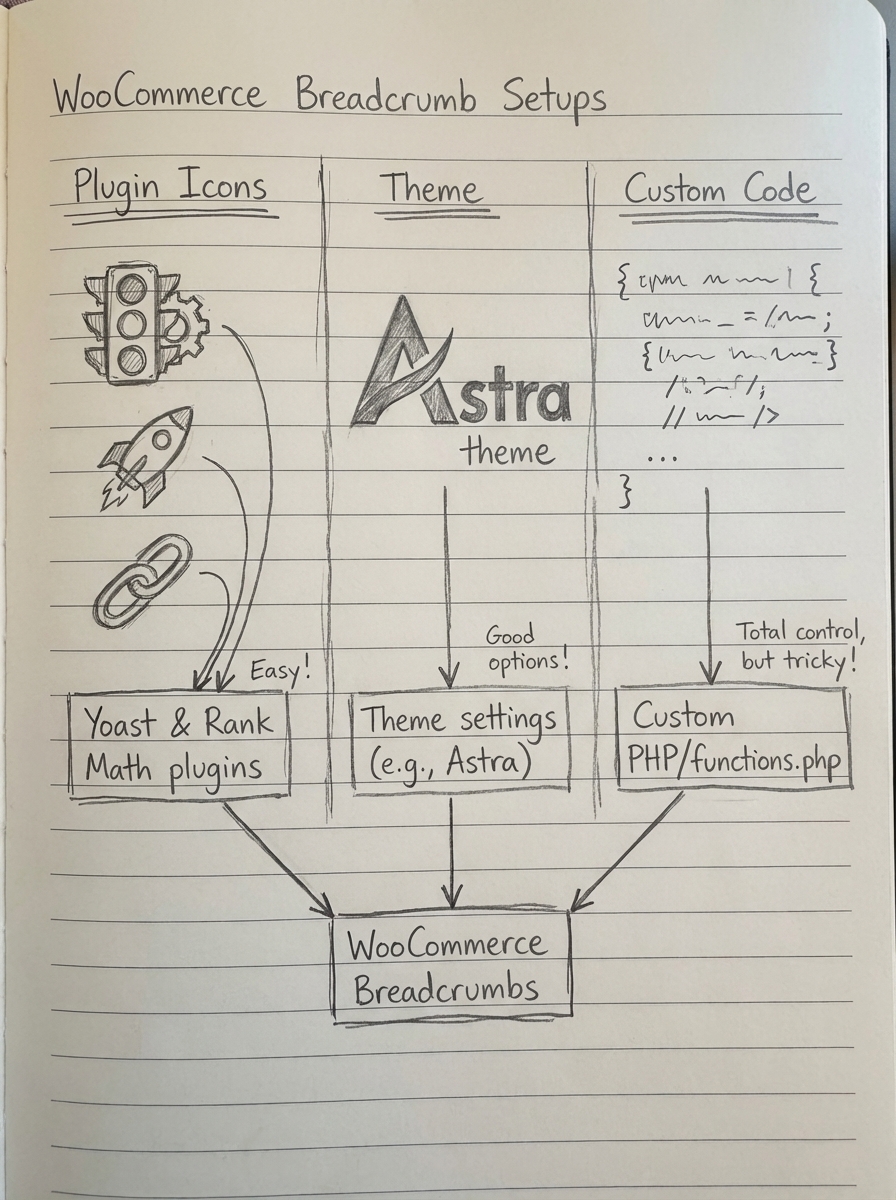 WooCommerce Breadcrumb Setups
Plugin Icons
Theme
Custom Code
Astra
theme
...
Easy!
Good
options!
Total control,
but tricky!
Yoast & Rank
Math plugins
Theme settings
(e.g., Astra)
Custom
PHP/functions.php
WooCommerce
Breadcrumbs